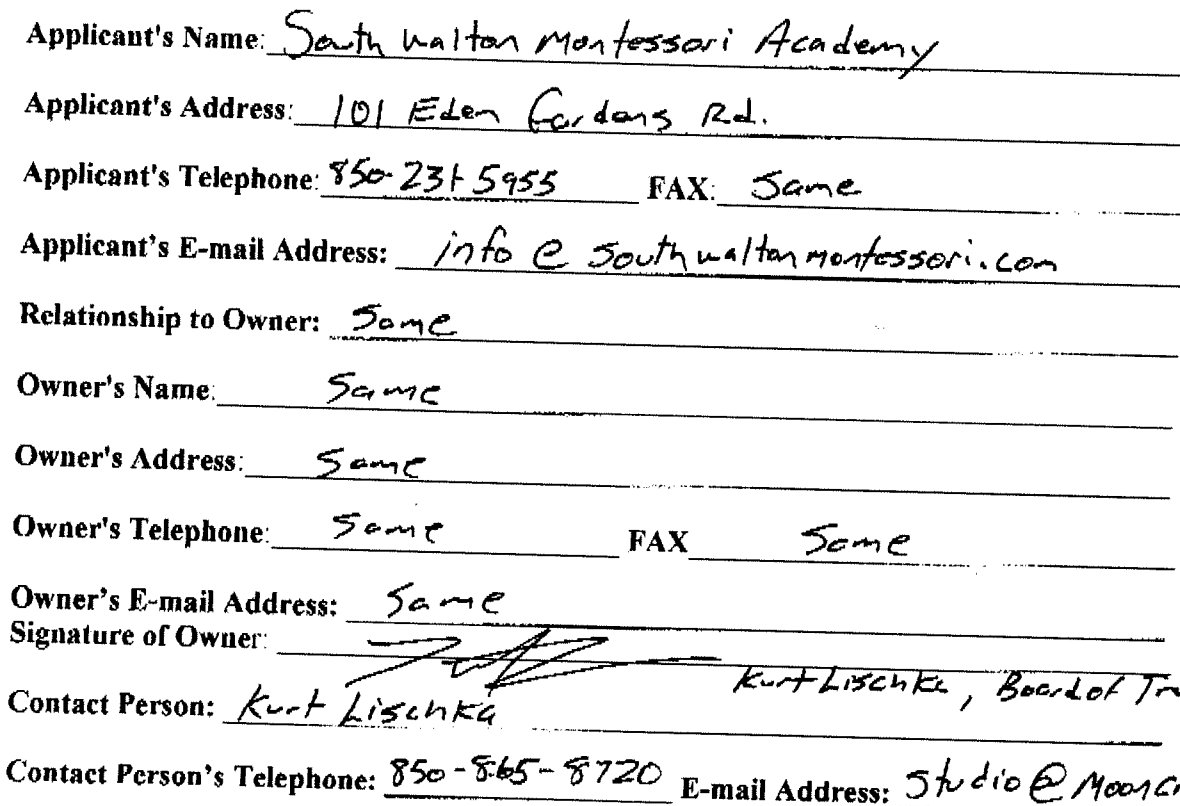 Applicant's Name: South Walton Montessori Academy
Applicant's Address: 101 Eden Gardens Rd.
Applicant's Telephone: 850-231-5955 FAX: Same
Applicant's E-mail Address: info@southwaltonmontessori.com
Relationship to Owner: Same
Owner's Name: Same
Owner's Address: Same
Owner's Telephone: Same FAX Same
Owner's E-mail Address: Same
Signature of Owner:
Kurt Lischka, Board of Tr
Contact Person: Kurt Lischka
Contact Person's Telephone: 850-865-8720 E-mail Address: Studio@Moon